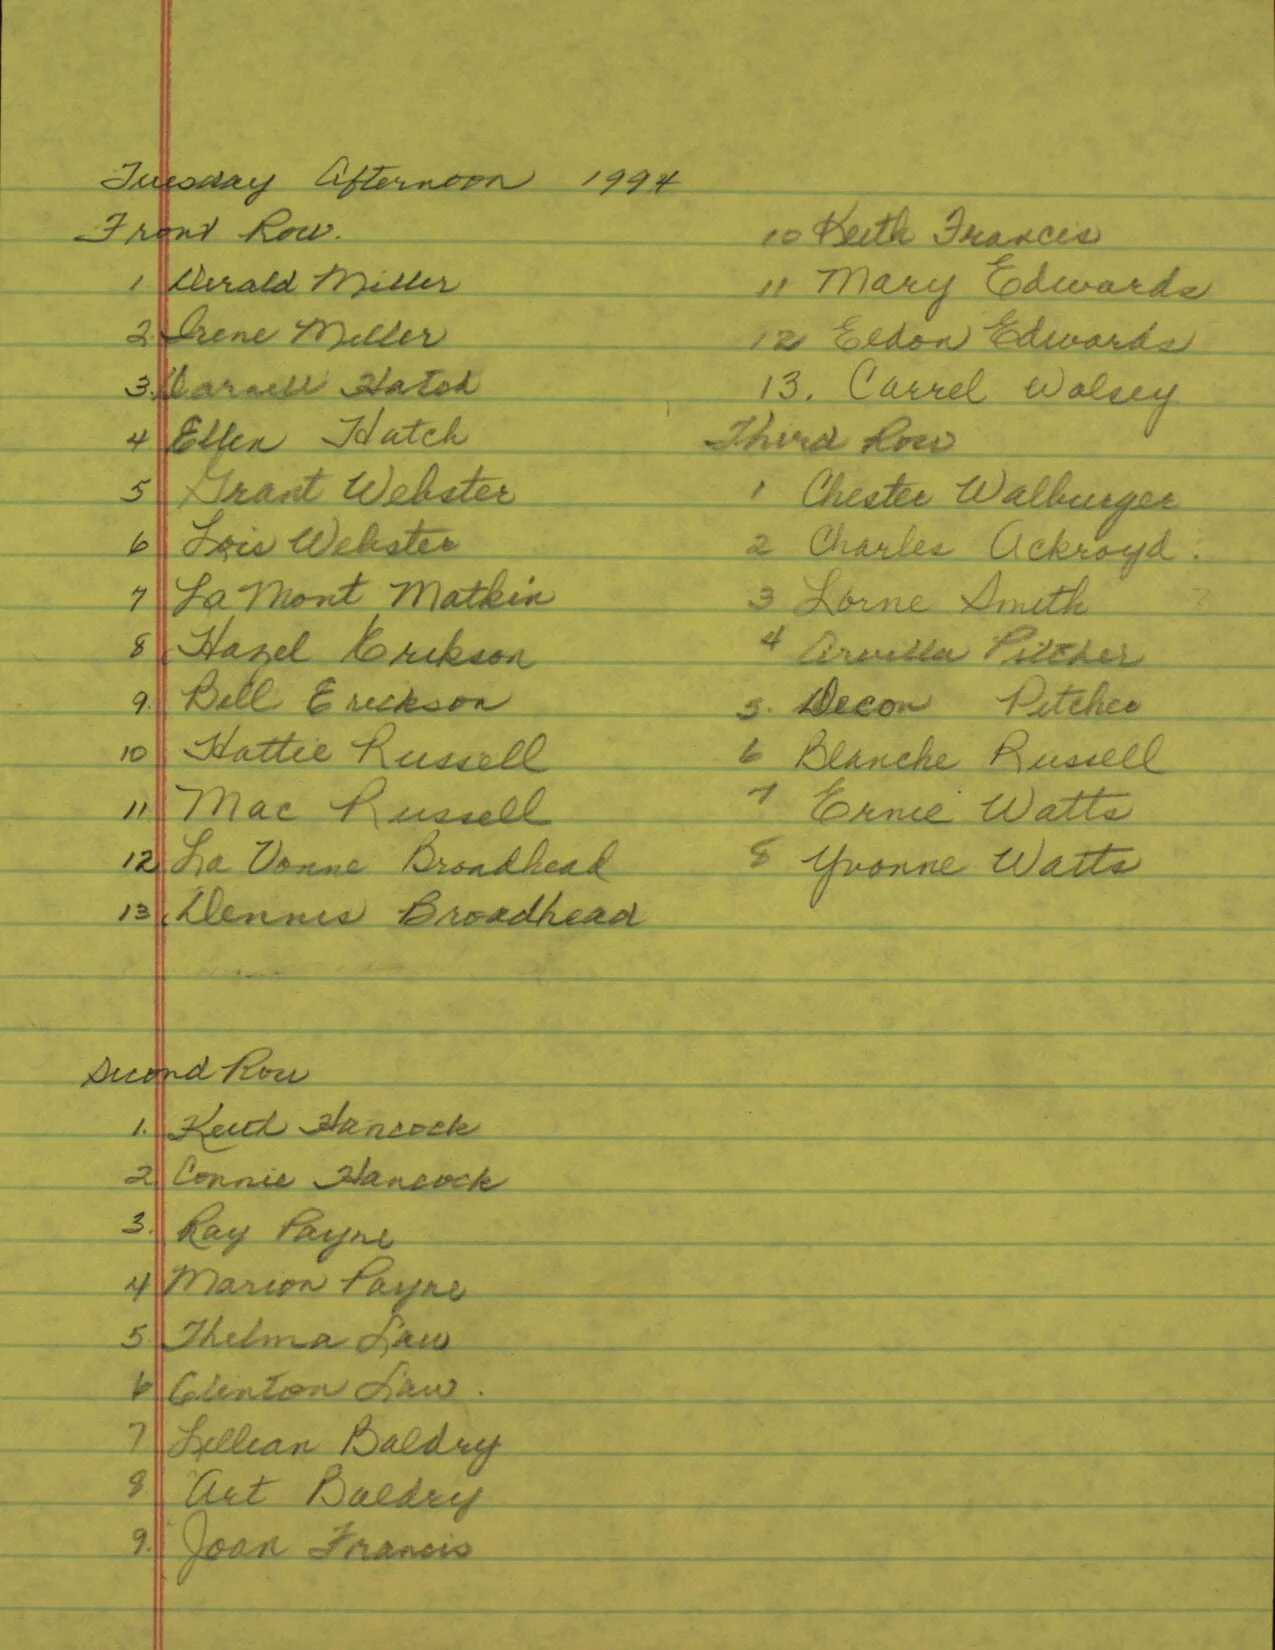 Tuesday Afternoon 1994
Front Row.
1 Derald Miller
2 Irene Miller
3. Darnell Hatch
4 Ellen Hatch
5 Grant Webster
6 Lois Webster
7 La Mont Matkin
8 Hazel Erickson
9. Bill Erickson
10 Hattie Russell
11 Mac Russell
12 La Vonne Broadhead
13 Dennis Broadhead
Second Row
1. Keith Hancock
2 Connie Hancock
3. Ray Payne
4 Marion Payne
5 Thelma Law
6 Clinton Law.
7 Lillian Baldry
8 Art Baldry
9. Joan Francis
10 Keith Francis
11 Mary Edwards
12 Eldon Edwards
13. Carrel Wolsey
Third Row
1 Chester Walburger
2 Charles Ackroyd.
3 Lorne Smith
4 Arvilla Pitcher
5. Decon Pitcher
6 Blanche Russell
7 Ernie Watts
8 Yvonne Watts